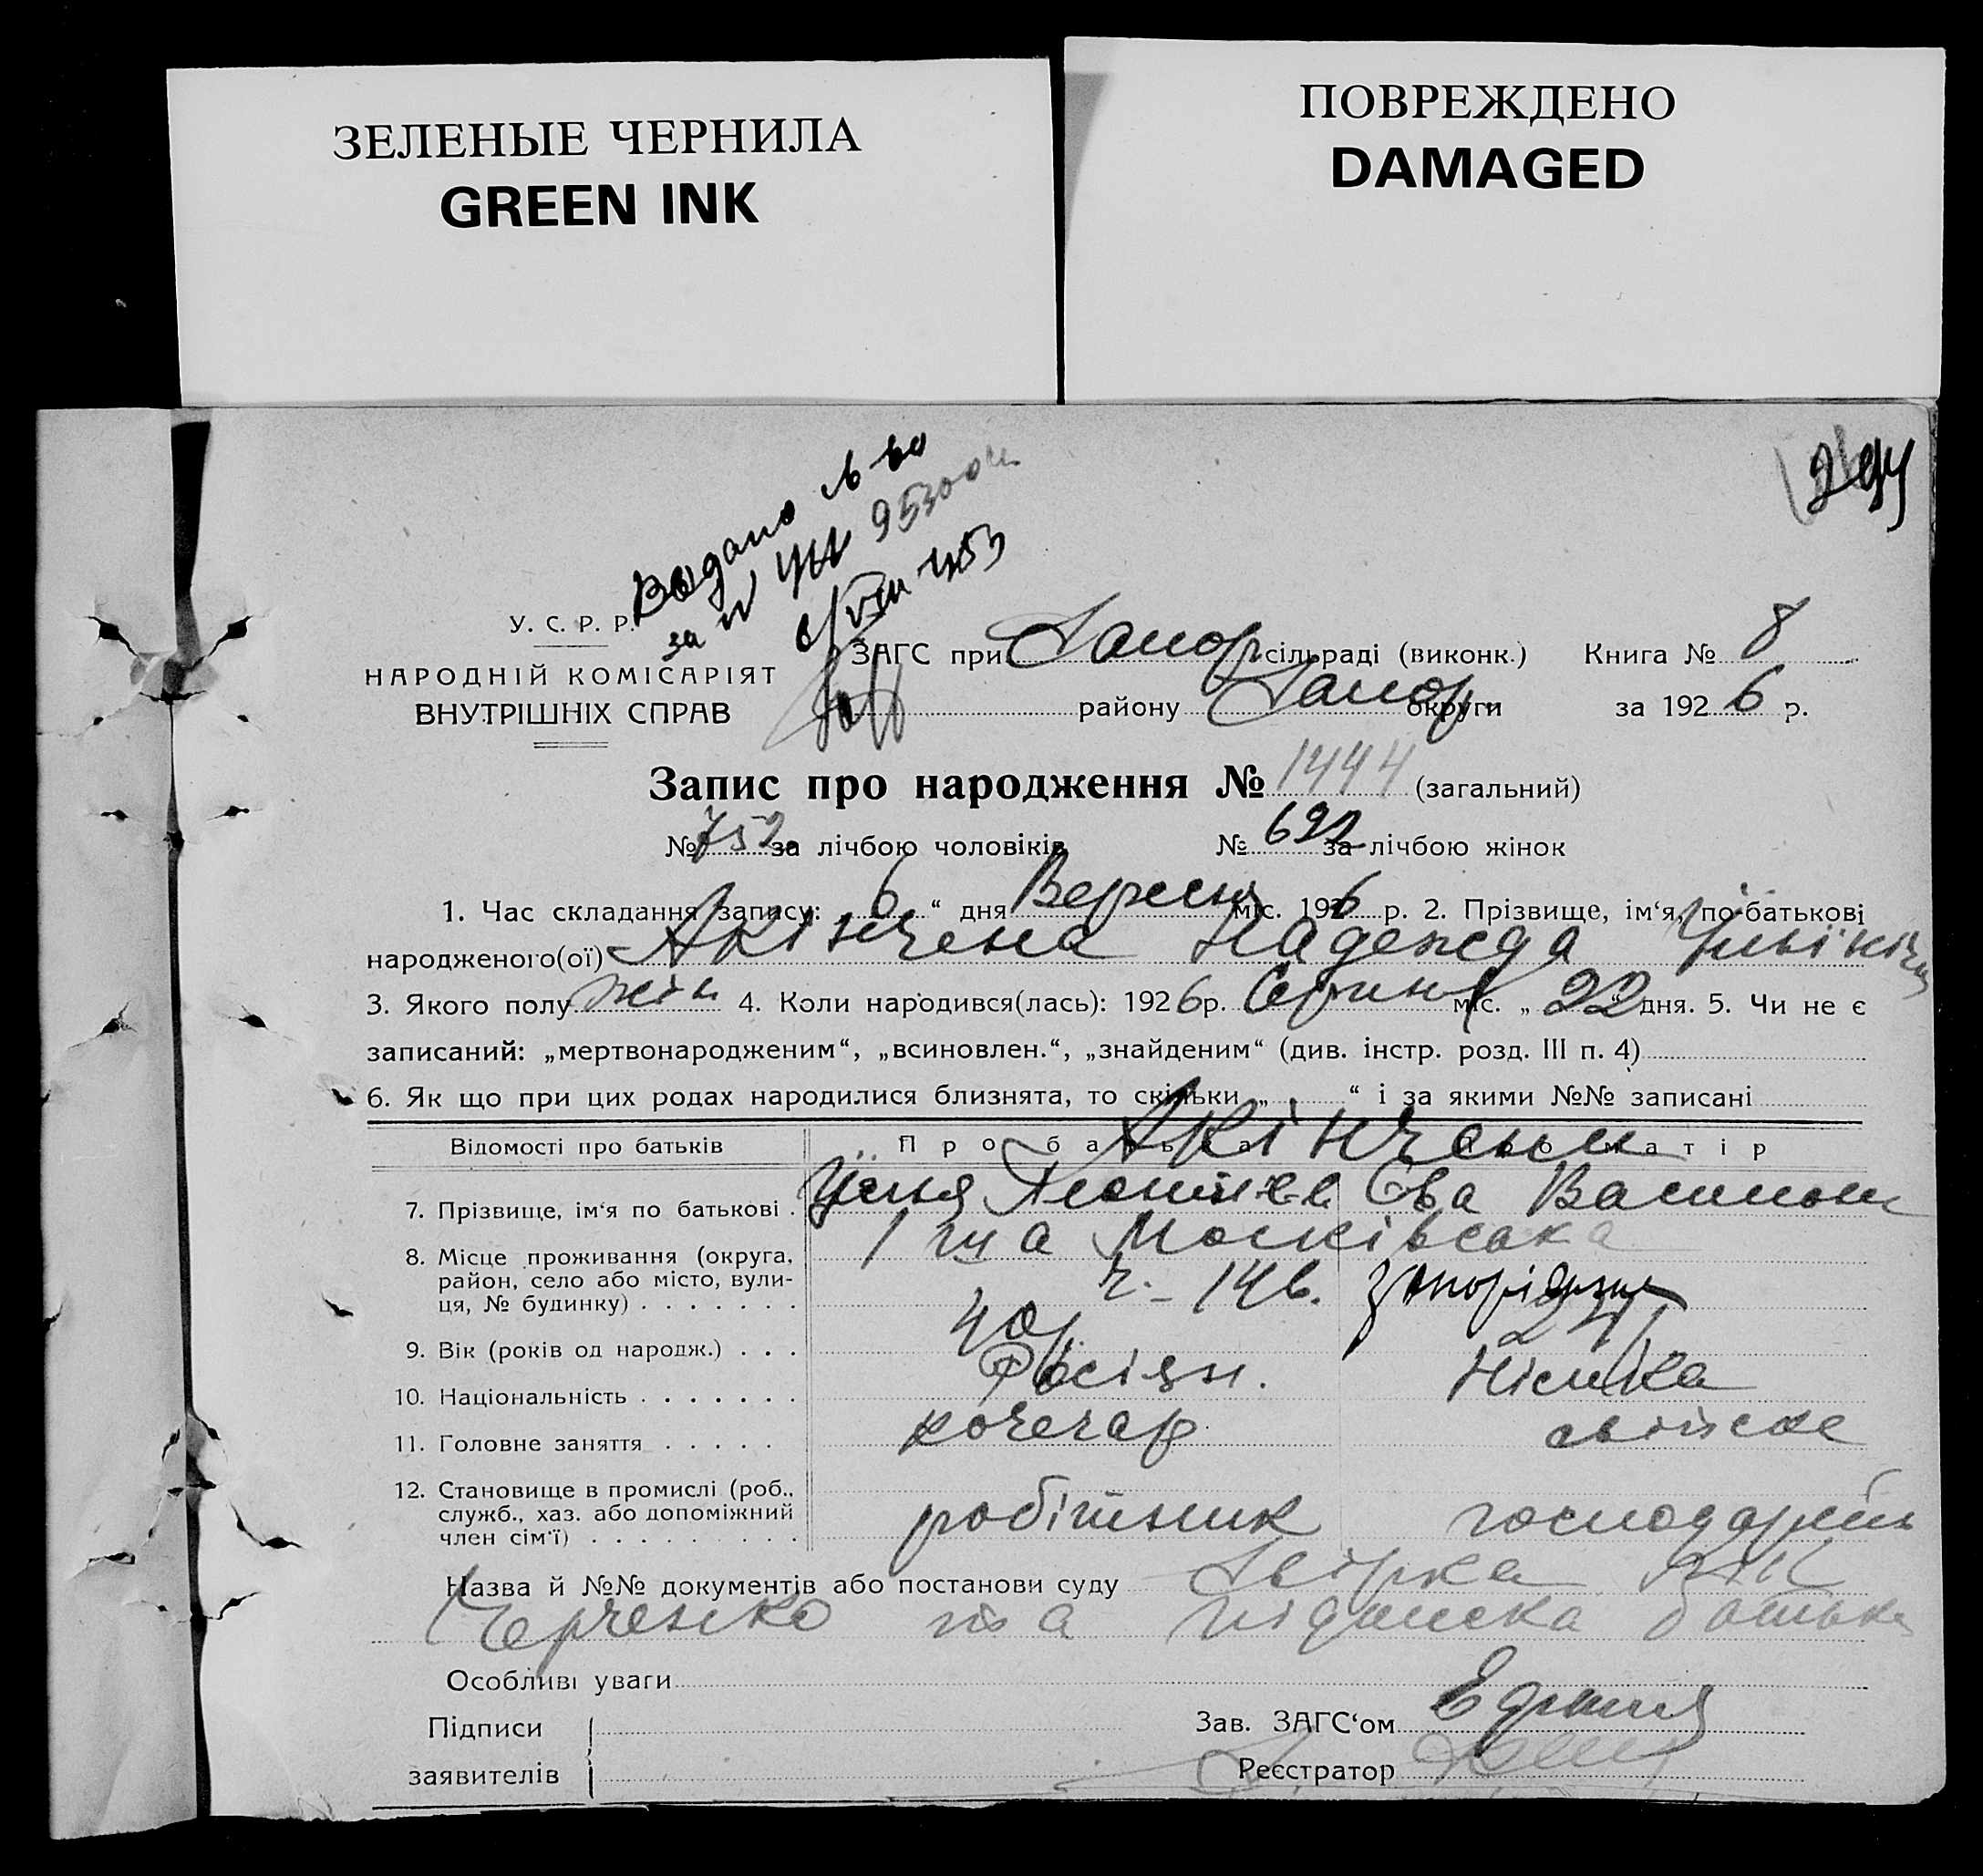 ЗЕЛЕНЫЕ ЧЕРНИЛА
GREEN INK
ПОВРЕЖДЕНО
DAMAGED
У. С. Р. Р.
НАРОДНІЙ КОМІСАРІЯТ
ВНУТРІШНІХ СПРАВ
ЗАГС при Запор. сільраді (виконк.) Книга № 8
району Запор. округи за 1926 р.
Запис про народження № 1444 (загальний)
№ 752 за лічбою чоловіків № 692 за лічбою жінок
1. Час складання запису: 6 “ дня Вересня міс. 1926 р. 2. Прізвище, ім‘я, по-батькові
народженого(ої) Акінчена Надежда
3. Якого полу жін 4. Коли народився(лась): 1926 р. Серпня міс. „ 22 дня. 5. Чи не є
записаний: „мертвонародженим“, „всиновлен.“, „знайденим“ (див. інстр. розд. III п. 4)
6. Як що при цих родах народилися близнята, то скільки „ “ і за якими №№ записані
Відомості про батьків Про батька Про матір
7. Прізвище, ім‘я по батькові . Ева
8. Місце проживання (округа,
район, село або місто, вули-
ця, № будинку) . . . . . . .
1 Московська
146.
9. Вік (років од народж.) . . . 40р.
10. Національність . . . . . . . Росіян. Німка
11. Головне заняття . . . . . кочегар свійске
12. Становище в промислі (роб.,
служб., хаз. або допоміжний
член сім‘ї) . . . . . . . . . робітник
Назва й №№ документів або постанови суду
та підписка батька
Особливі уваги
Підписи
заявителів
Зав. ЗАГС‘ом
Реєстратор